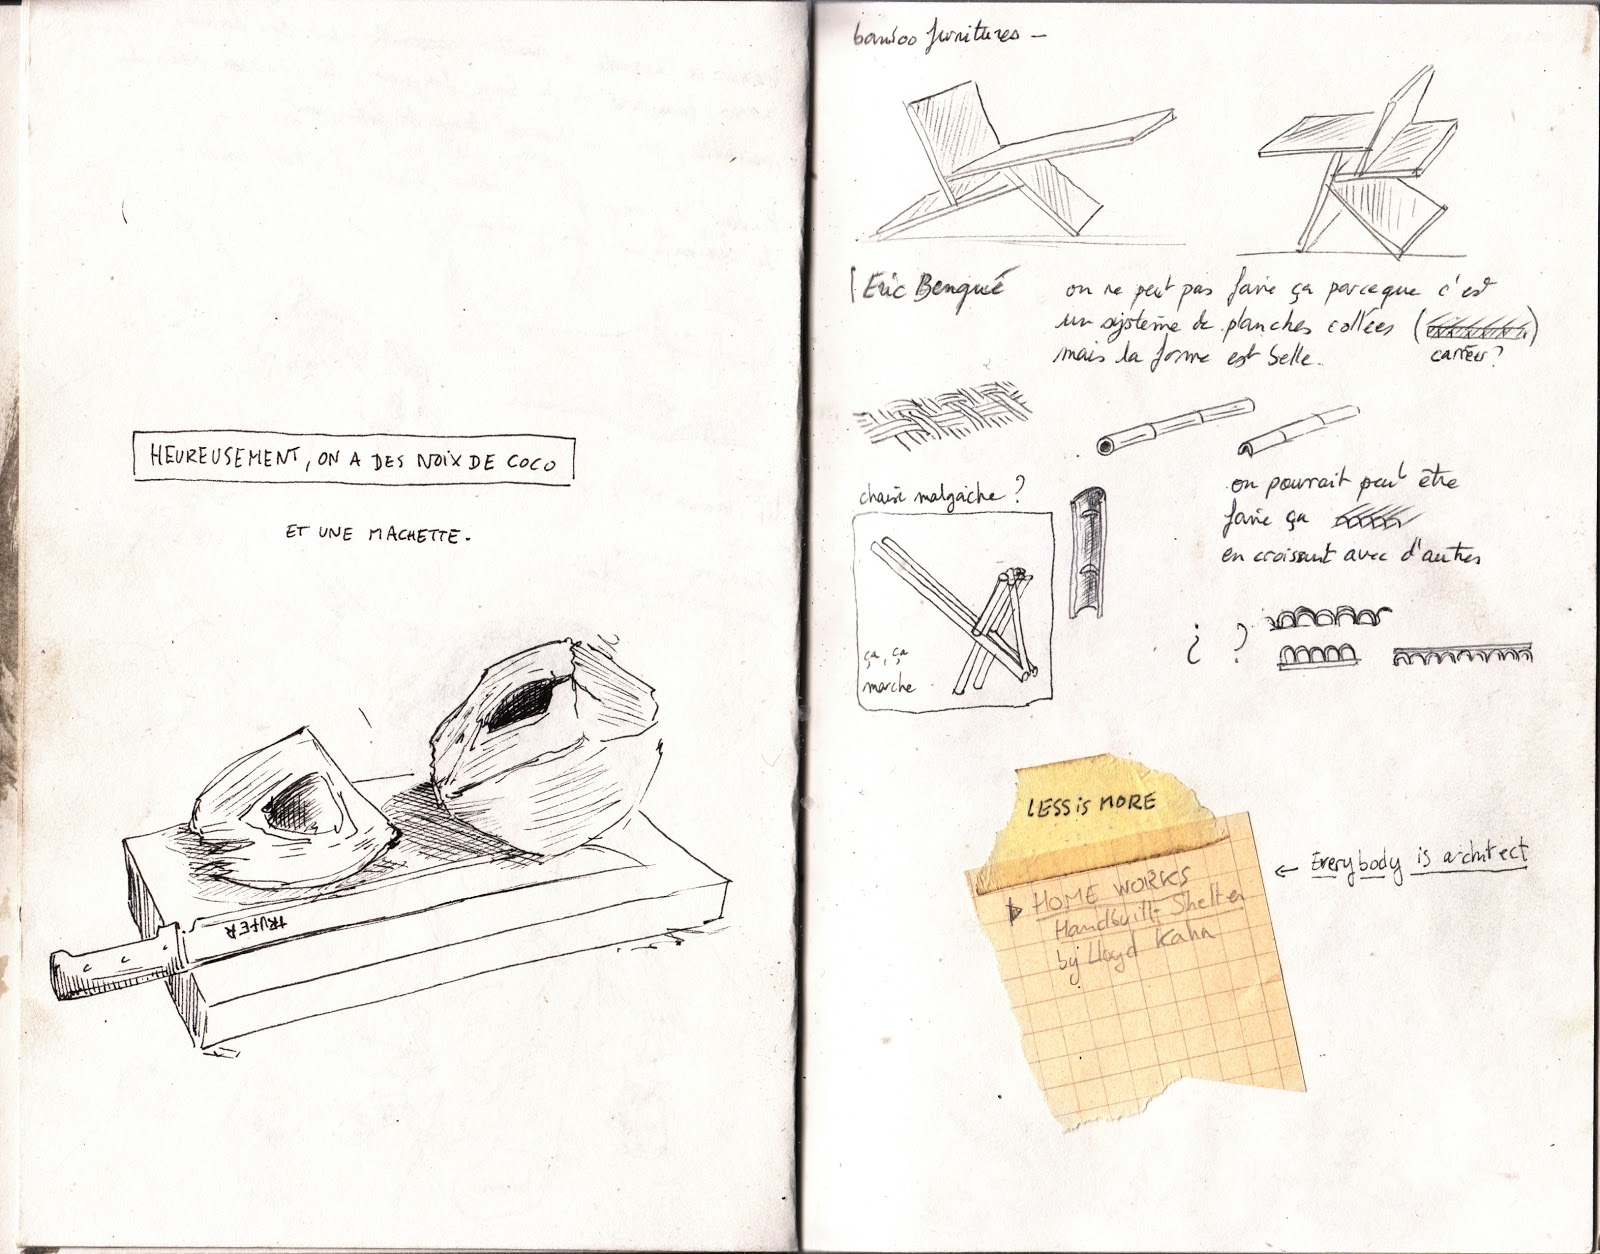 HEUREUSEMENT, ON A DES NOIX DE COCO
ET UNE MACHETTE.
bamboo furnitures –
Eric Benqué
on ne peut pas faire ça parceque c'est
un système de planches collées (
)
carrées?
mais la forme est belle.
chaise malgache ?
ça, ça
marche
on pourrait peut être
faire ça
en croissant avec d'autres
¿ ?
LESS iS MORE
HOME WORKS
Handbuilt Shelter
by Lloyd Kahn
← Everybody is architect